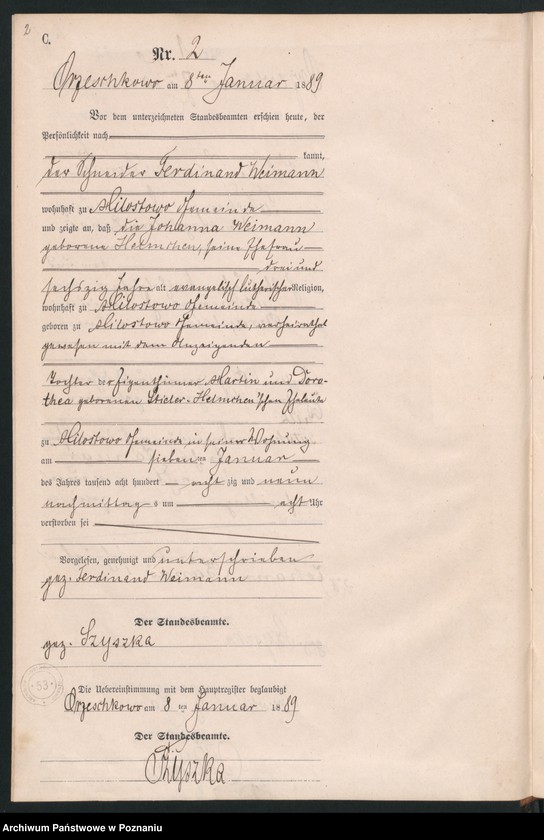 2
C.
Nr. 2
Orzeschkowo am 8ten Januar 1889
Vor dem unterzeichneten Standesbeamten erschien heute, der
Persönlichkeit nach
kannt,
der Schneider Ferdinand Weimann
wohnhaft zu Milostowo Gemeinde
und zeigte an, daß die Johanna Weimann
geborene Helmchen, seine Ehefrau
drei und
sechszig Jahre alt evangelisch lutherischer Religion,
wohnhaft zu Milostowo Gemeinde
geboren zu Milostowo Gemeinde, verheirathet
gewesen mit dem Anzeigenden
Tochter der Eigenthümer Martin und Doro-
thea geborenen Stieler-Helmchen'schen Eheleute
zu Milostowo Gemeinde in seiner Wohnung
am sieben ten Januar
des Jahres tausend acht hundert acht zig und neun
nachmittag s um acht Uhr
verstorben sei
Vorgelesen, genehmigt und unterschrieben
gez. Ferdinand Weimann
Der Standesbeamte.
gez. Szyszka
Die Uebereinstimmung mit dem Hauptregister beglaubigt
Orzeschkowo am 8 ten Januar 1889
Der Standesbeamte.
Szyszka
53
Archiwum Państwowe w Poznaniu